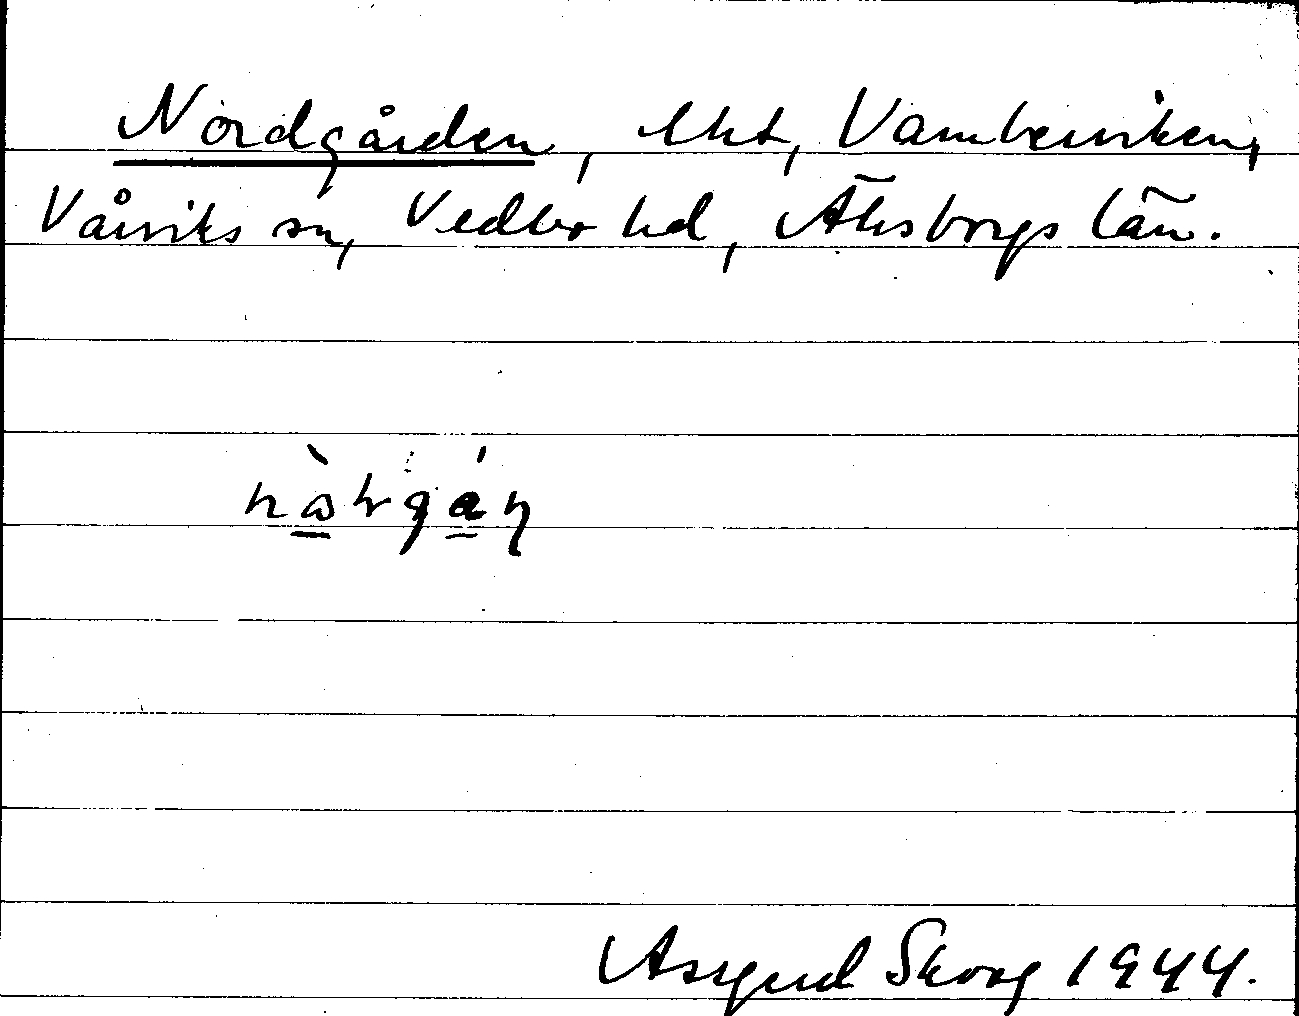 Nordgården, lht, Vambersviken,
Vårviks sn, Vedbo hd, Älvsborgs län.
Assgerd Skoog 1944.